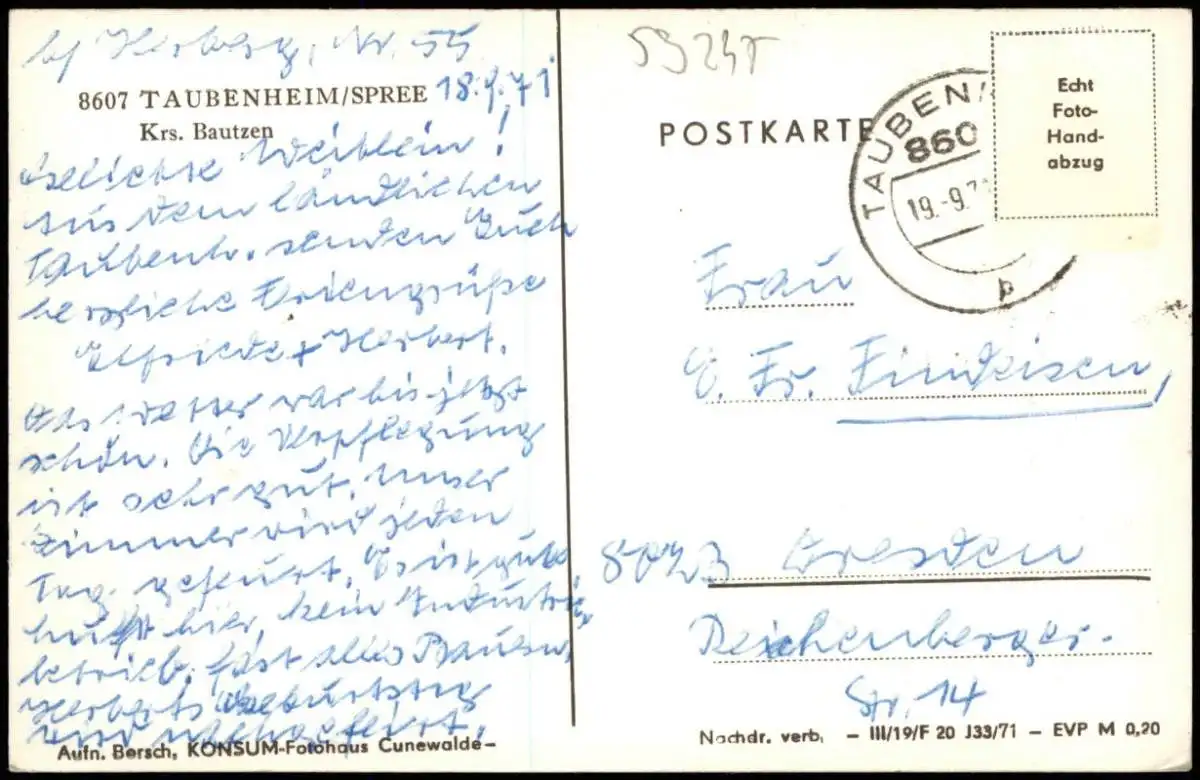 b/ Herberg, Nr. 55
8607 TAUBENHEIM/SPREE 18.9.71
Krs. Bautzen
Weiblein!
Aus dem ländlichen
Taubenh. senden Euch
herzliche Feriengrüße
Elfriede + Herbert.
Das Wetter war bis jetzt
schön. Die Verpflegung
ist sehr gut. Unser
Zimmer wird jeden
Tag gefeuert. Es ist gute
Luft hier, kein Industrie-
betrieb, fast alles Bauern.
Herberts Geburtstag
wird nachgefeiert.
Aufn. Bersch, KONSUM-Fotohaus Cunewalde-
POSTKARTE
TAUBENH
860
19.-9.71
b
Echt
Foto-
Hand-
abzug
Frau
E. Fr. Findeisen,
8023 Dresden
Reichenberger-
Str. 14
Nachdr. verb. - III/19/F 20 J33/71 - EVP M 0,20